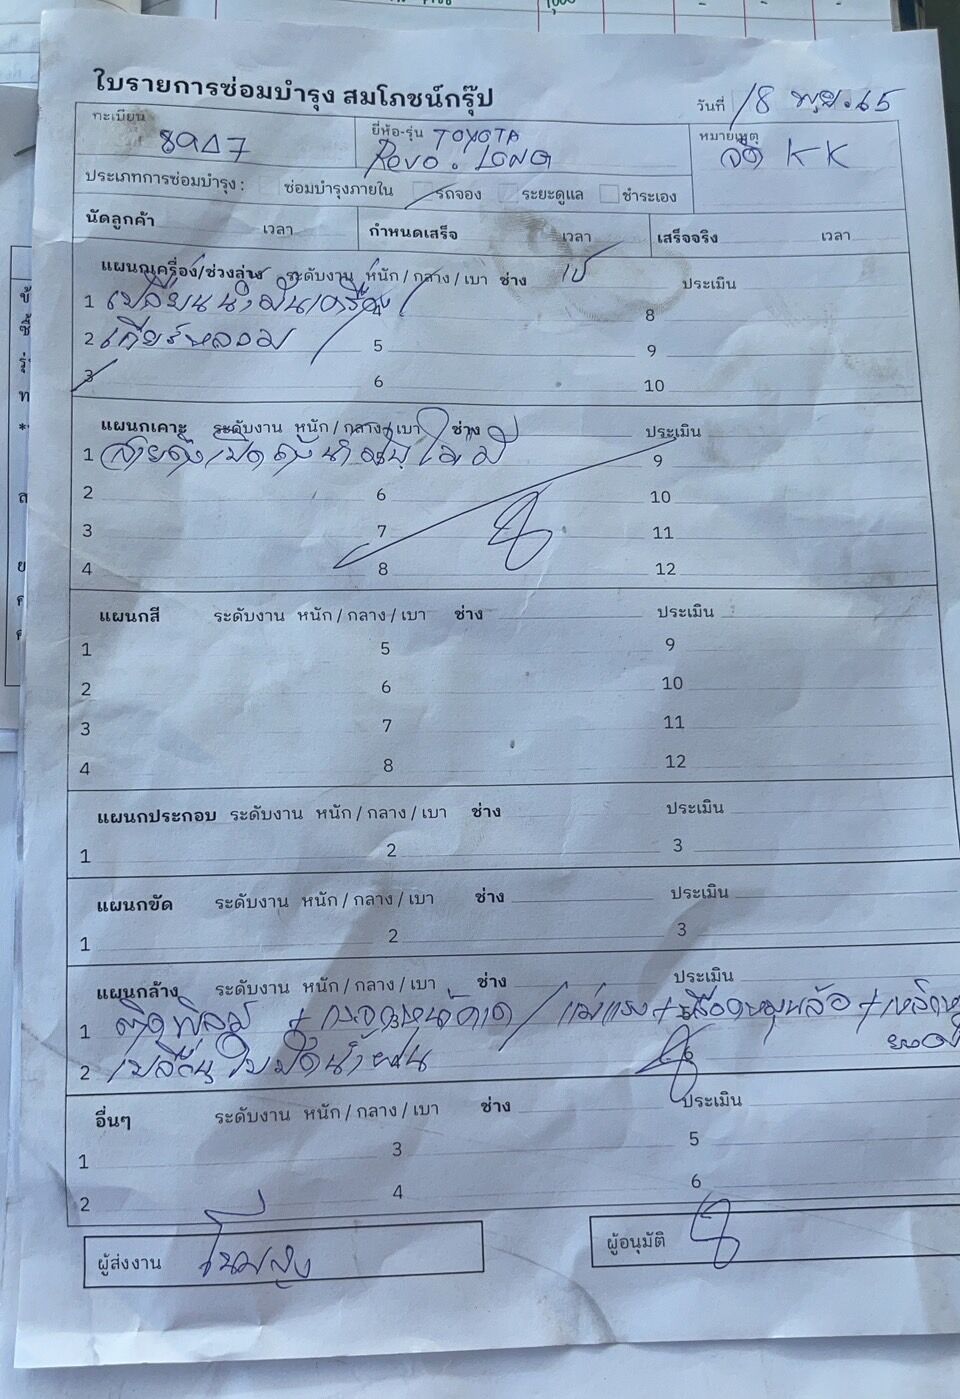 ใบรายการซ่อมบำรุง สมโภชน์กรุ๊ป
วันที่ 18 พ.ย. 65
ทะเบียน
ยี่ห้อ-รุ่น TOYOTA
REVO.
หมายเหตุ
KK
ประเภทการซ่อมบำรุง : ซ่อมบำรุงภายใน รถจอง ระยะดูแล ชำระเอง
นัดลูกค้า เวลา กำหนดเสร็จ เวลา เสร็จจริง เวลา
แผนกเครื่อง/ช่วงล่าง ระดับงาน หนัก / กลาง / เบา ช่าง ประเมิน
1 เปลี่ยนน้ำมันเครื่อง 8
2 เกียร์หลวม 5 9
3 6 10
แผนกเคาะ ระดับงาน หนัก / กลาง / เบา ช่าง ประเมิน
1 สายดึงเปิดถังน้ำมันไม่มี 9
2 6 10
3 7 11
4 8 12
แผนกสี ระดับงาน หนัก / กลาง / เบา ช่าง ประเมิน
1 5 9
2 6 10
3 7 11
4 8 12
แผนกประกอบ ระดับงาน หนัก / กลาง / เบา ช่าง ประเมิน
1 2 3
แผนกขัด ระดับงาน หนัก / กลาง / เบา ช่าง ประเมิน
1 2 3
แผนกล้าง ระดับงาน หนัก / กลาง / เบา ช่าง ประเมิน
1 ติดฟิลม์ + กระจกหน้าคาด / แม่แรง +
2 เปลี่ยนใบปัดน้ำฝน
อื่นๆ ระดับงาน หนัก / กลาง / เบา ช่าง ประเมิน
1 3 5
2 4 6
ผู้ส่งงาน
ผู้อนุมัติ